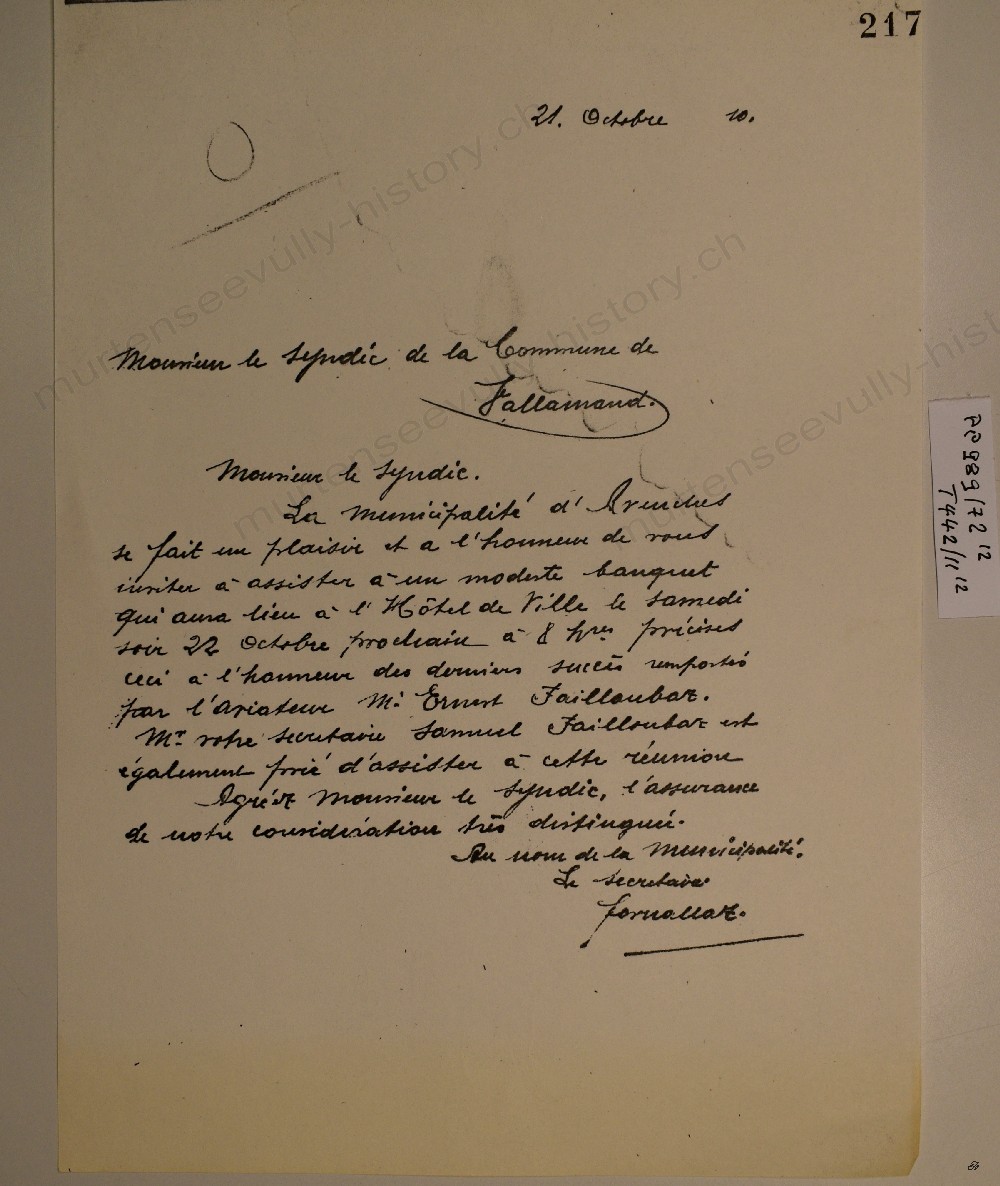 217
21. Octobre 10.
Monsieur le Syndic de la Commune de
Vallamand.
Monsieur le Syndic.
La Municipalité d'Avenches
se fait un plaisir et a l'honneur de vous
inviter à assister à un modeste banquet
qui aura lieu à l'Hôtel de Ville le samedi
soir 22 Octobre prochain à 8 hres précises
ceci à l'honneur des derniers succès remportés
par l'aviateur Mr Ernest Failloubaz.
Mr votre secretaire Samuel Failloubaz est
également prié d'assister à cette réunion
Agréez Monsieur le Syndic, l'assurance
de notre considération très distinguée.
Au nom de la Municipalité.
Le secretaire
Fornallaz.
PP 989/72 12
T 442/11 12
murtenseevully-history.ch
murtenseevully-history.ch
murtenseevully-history.ch